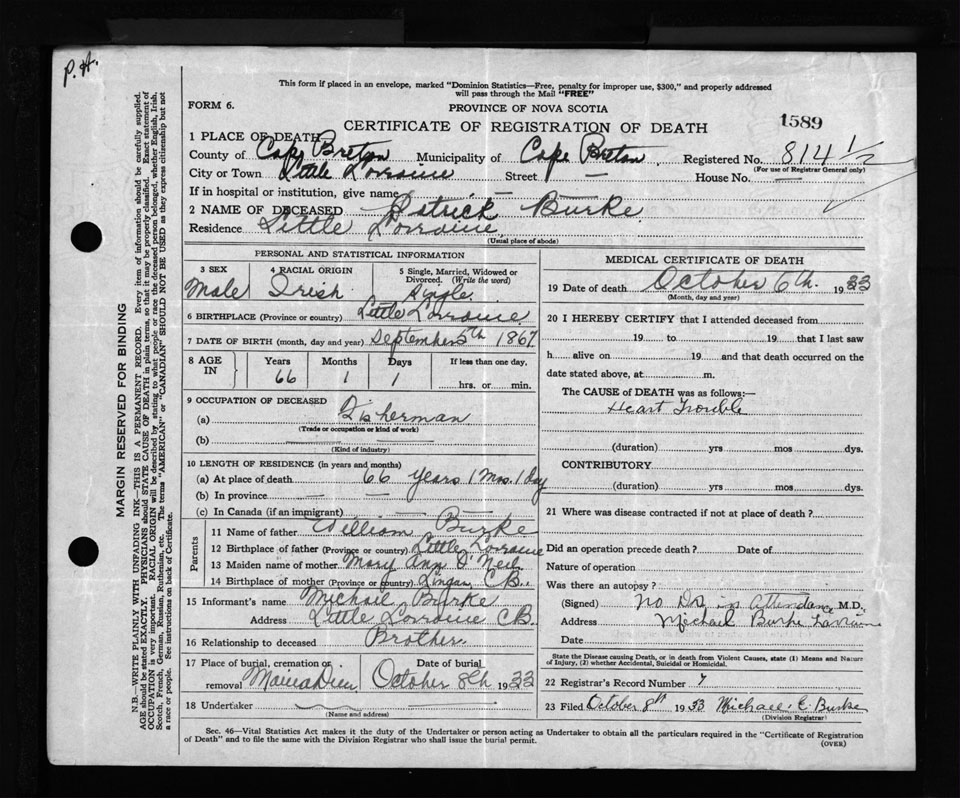 P.H.
This form if placed in an envelope, marked "Dominion Statistics—Free, penalty for improper use, $300," and properly addressed
will pass through the Mail "FREE"
FORM 6.
PROVINCE OF NOVA SCOTIA
1589
CERTIFICATE OF REGISTRATION OF DEATH
1 PLACE OF DEATH
County of Cape Breton Municipality of Cape Breton Registered No. 814 1/2
(For use of Registrar General only)
City or Town Little Lorraine Street — House No. —
If in hospital or institution, give name —
2 NAME OF DECEASED Patrick Burke
Residence Little Lorraine
(Usual place of abode)
PERSONAL AND STATISTICAL INFORMATION
3 SEX 4 RACIAL ORIGIN 5 Single, Married, Widowed or
Divorced. (Write the word)
Male Irish Single
6 BIRTHPLACE (Province or country) Little Lorraine
7 DATE OF BIRTH (month, day and year) September 5th 1867
8 AGE IN Years Months Days If less than one day,
66 1 1 hrs. or min.
9 OCCUPATION OF DECEASED
(a) Fisherman
(Trade or occupation or kind of work)
(b)
(Kind of industry)
10 LENGTH OF RESIDENCE (in years and months)
(a) At place of death 66 years 1 Mos. 1 day
(b) In province — —
(c) In Canada (if an immigrant) —
Parents
11 Name of father William Burke
12 Birthplace of father (Province or country) Little Lorraine
13 Maiden name of mother Mary Ann O'Neil
14 Birthplace of mother (Province or country) Lingan C B.
15 Informant's name Michael Burke
Address Little Lorraine CB.
16 Relationship to deceased Brother
17 Place of burial, cremation or Date of burial
removal Mainadieu October 8th 1933
18 Undertaker
(Name and address)
MEDICAL CERTIFICATE OF DEATH
19 Date of death October 6th. 1933
(Month, day and year)
20 I HEREBY CERTIFY that I attended deceased from
19 to 19 that I last saw
h alive on 19 and that death occurred on the
date stated above, at m.
The CAUSE of DEATH was as follows:—
Heart Trouble
(duration) yrs mos dys.
CONTRIBUTORY
(duration) yrs mos dys.
21 Where was disease contracted if not at place of death ?
Did an operation precede death ? Date of
Nature of operation
Was there an autopsy ?
(Signed) No Dr in Attendance M.D.
Address Michael Burke
Date
State the Disease causing Death, or in death from Violent Causes, state (1) Means and Nature
of Injury, (2) whether Accidental, Suicidal or Homicidal.
22 Registrar's Record Number 7
23 Filed October 8th 1933 Michael C. Burke
(Division Registrar)
Sec. 46—Vital Statistics Act makes it the duty of the Undertaker or person acting as Undertaker to obtain all the particulars required in the "Certificate of Registration
of Death" and to file the same with the Division Registrar who shall issue the burial permit.
(OVER)
MARGIN RESERVED FOR BINDING
N.B.—WRITE PLAINLY WITH UNFADING INK—THIS IS A PERMANENT RECORD. Every item of information should be carefully supplied.
AGE should be stated EXACTLY. PHYSICIANS should STATE CAUSE OF DEATH in plain terms, so that it may be properly classified. Exact statement of
OCCUPATION is very important. RACIAL ORIGIN will be described by stating to what people or race the deceased person belonged, whether English, Irish,
Scotch, French, German, Russian, Ruthenian, etc. The terms "AMERICAN" or "CANADIAN" SHOULD NOT BE USED as they express citizenship but not
a race or people. See instructions on back of Certificate.